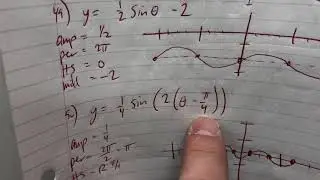 4a) y = 1/2 sin θ - 2
amp = 1/2
per = 2π
HS = 0
mid = -2
5) y = -1/4 sin(2(θ - π/4))
amp = 1/4
per = 2π/2 = π